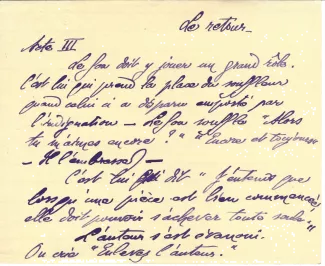 Le retour_
Acte III
Le fou doit y jouer un grand rôle.
C'est lui qui prend la place du souffleur
quand celui ci a disparu emporté par
l'indignation — Le fou souffle "Alors
tu m'aimes encore ?" "Encore et toujours
— Il l'embrasse) —
C'est lui qui dit "J'entends que
lorsqu'une pièce est bien commencée,
elle doit pouvoir s'achever toute seule"
L'auteur s'est évanoui.
On crie "Enlevez l'auteur."